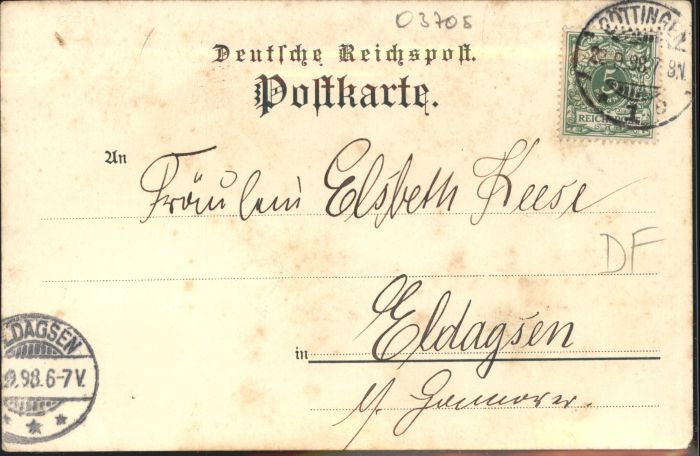 03705
Deutsche Reichspost.
Postkarte.
GÖTTINGEN
98.7-8V.
5
REICHSPOST
1
An
Fräulein Elsbeth Keese
DF
Eldagsen
in
b/ Hannover.
LDAGSEN
9.98.6-7V.